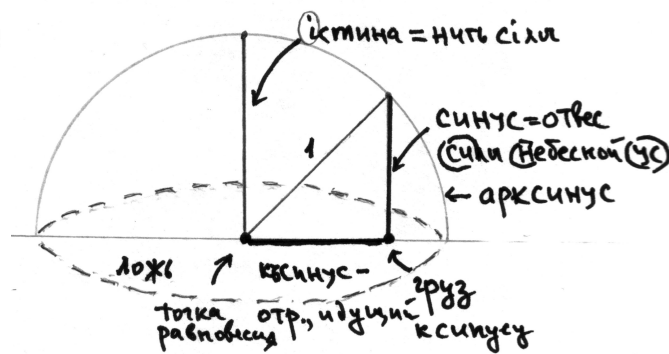 істина = нить сіли
синус = отвес
сили небеской ус
← арксинус
1
ложь
къ синус –
груз
точка равновесия
отр., идущий к синусу